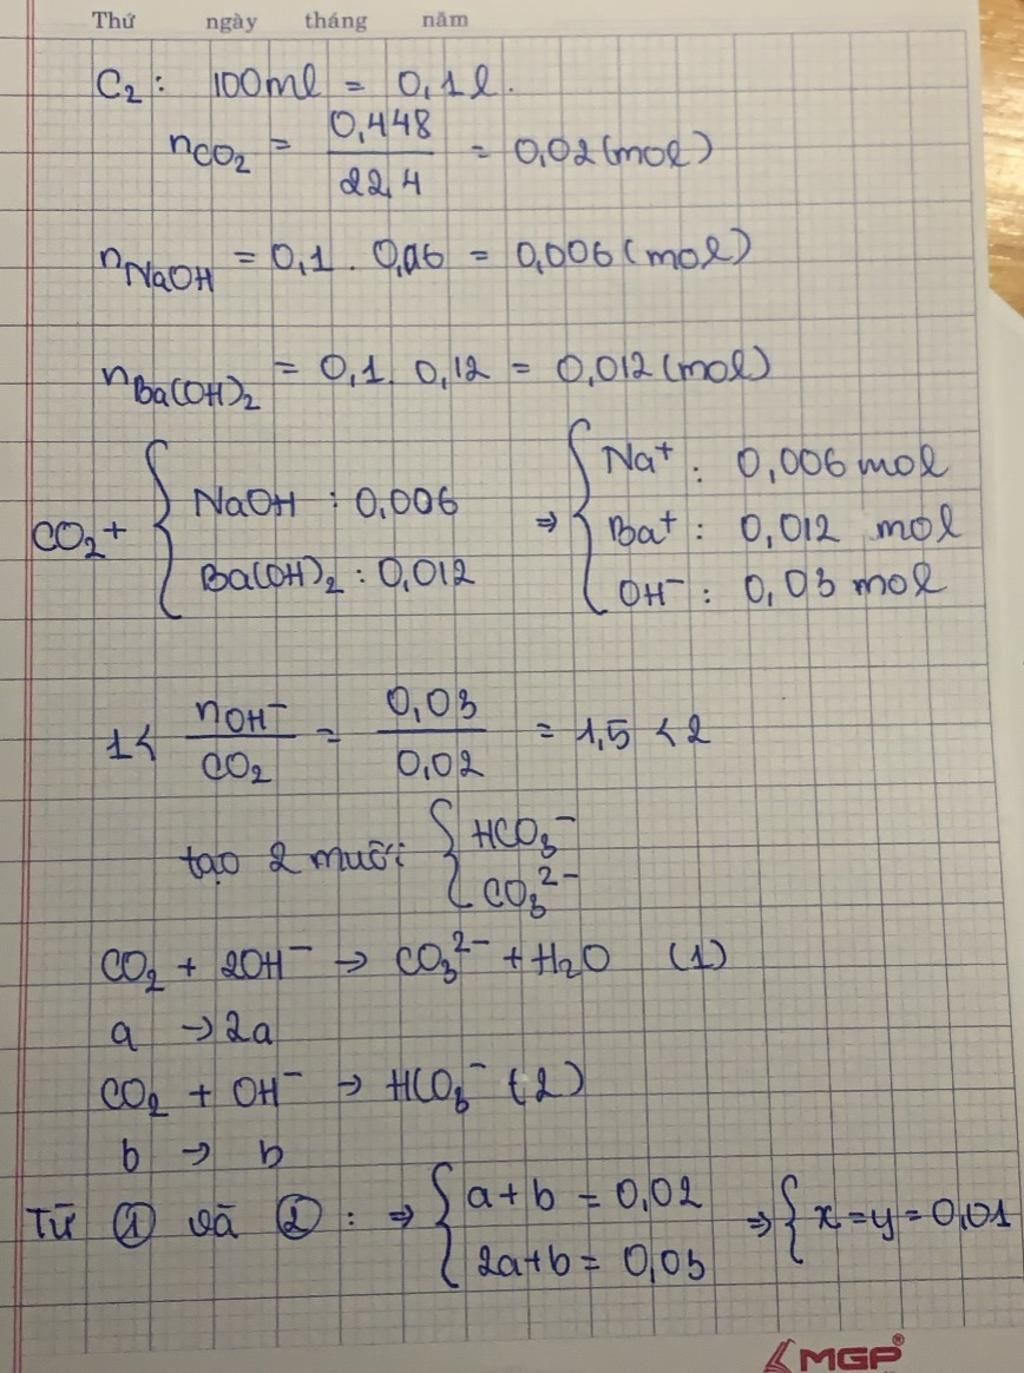 Thứ ngày tháng năm
C₂: 100ml = 0,1l.
nCO₂ = 0,448 / 22,4 = 0,02 (mol)
nNaOH = 0,1 . 0,06 = 0,006 (mol)
nBa(OH)₂ = 0,1 . 0,12 = 0,012 (mol)
CO₂ + { NaOH : 0,006
Ba(OH)₂ : 0,012
⇒ { Na⁺ : 0,006 mol
Ba⁺ : 0,012 mol
OH⁻ : 0,03 mol
1 < nOH⁻ / CO₂ = 0,03 / 0,02 = 1,5 < 2
tạo 2 muối { HCO₃⁻
CO₃²⁻
CO₂ + 2OH⁻ → CO₃²⁻ + H₂O (1)
a → 2a
CO₂ + OH⁻ → HCO₃⁻ (2)
b → b
Từ ① và ② : ⇒ { a + b = 0,02
2a + b = 0,03
⇒ { x = y = 0,01
MGP®